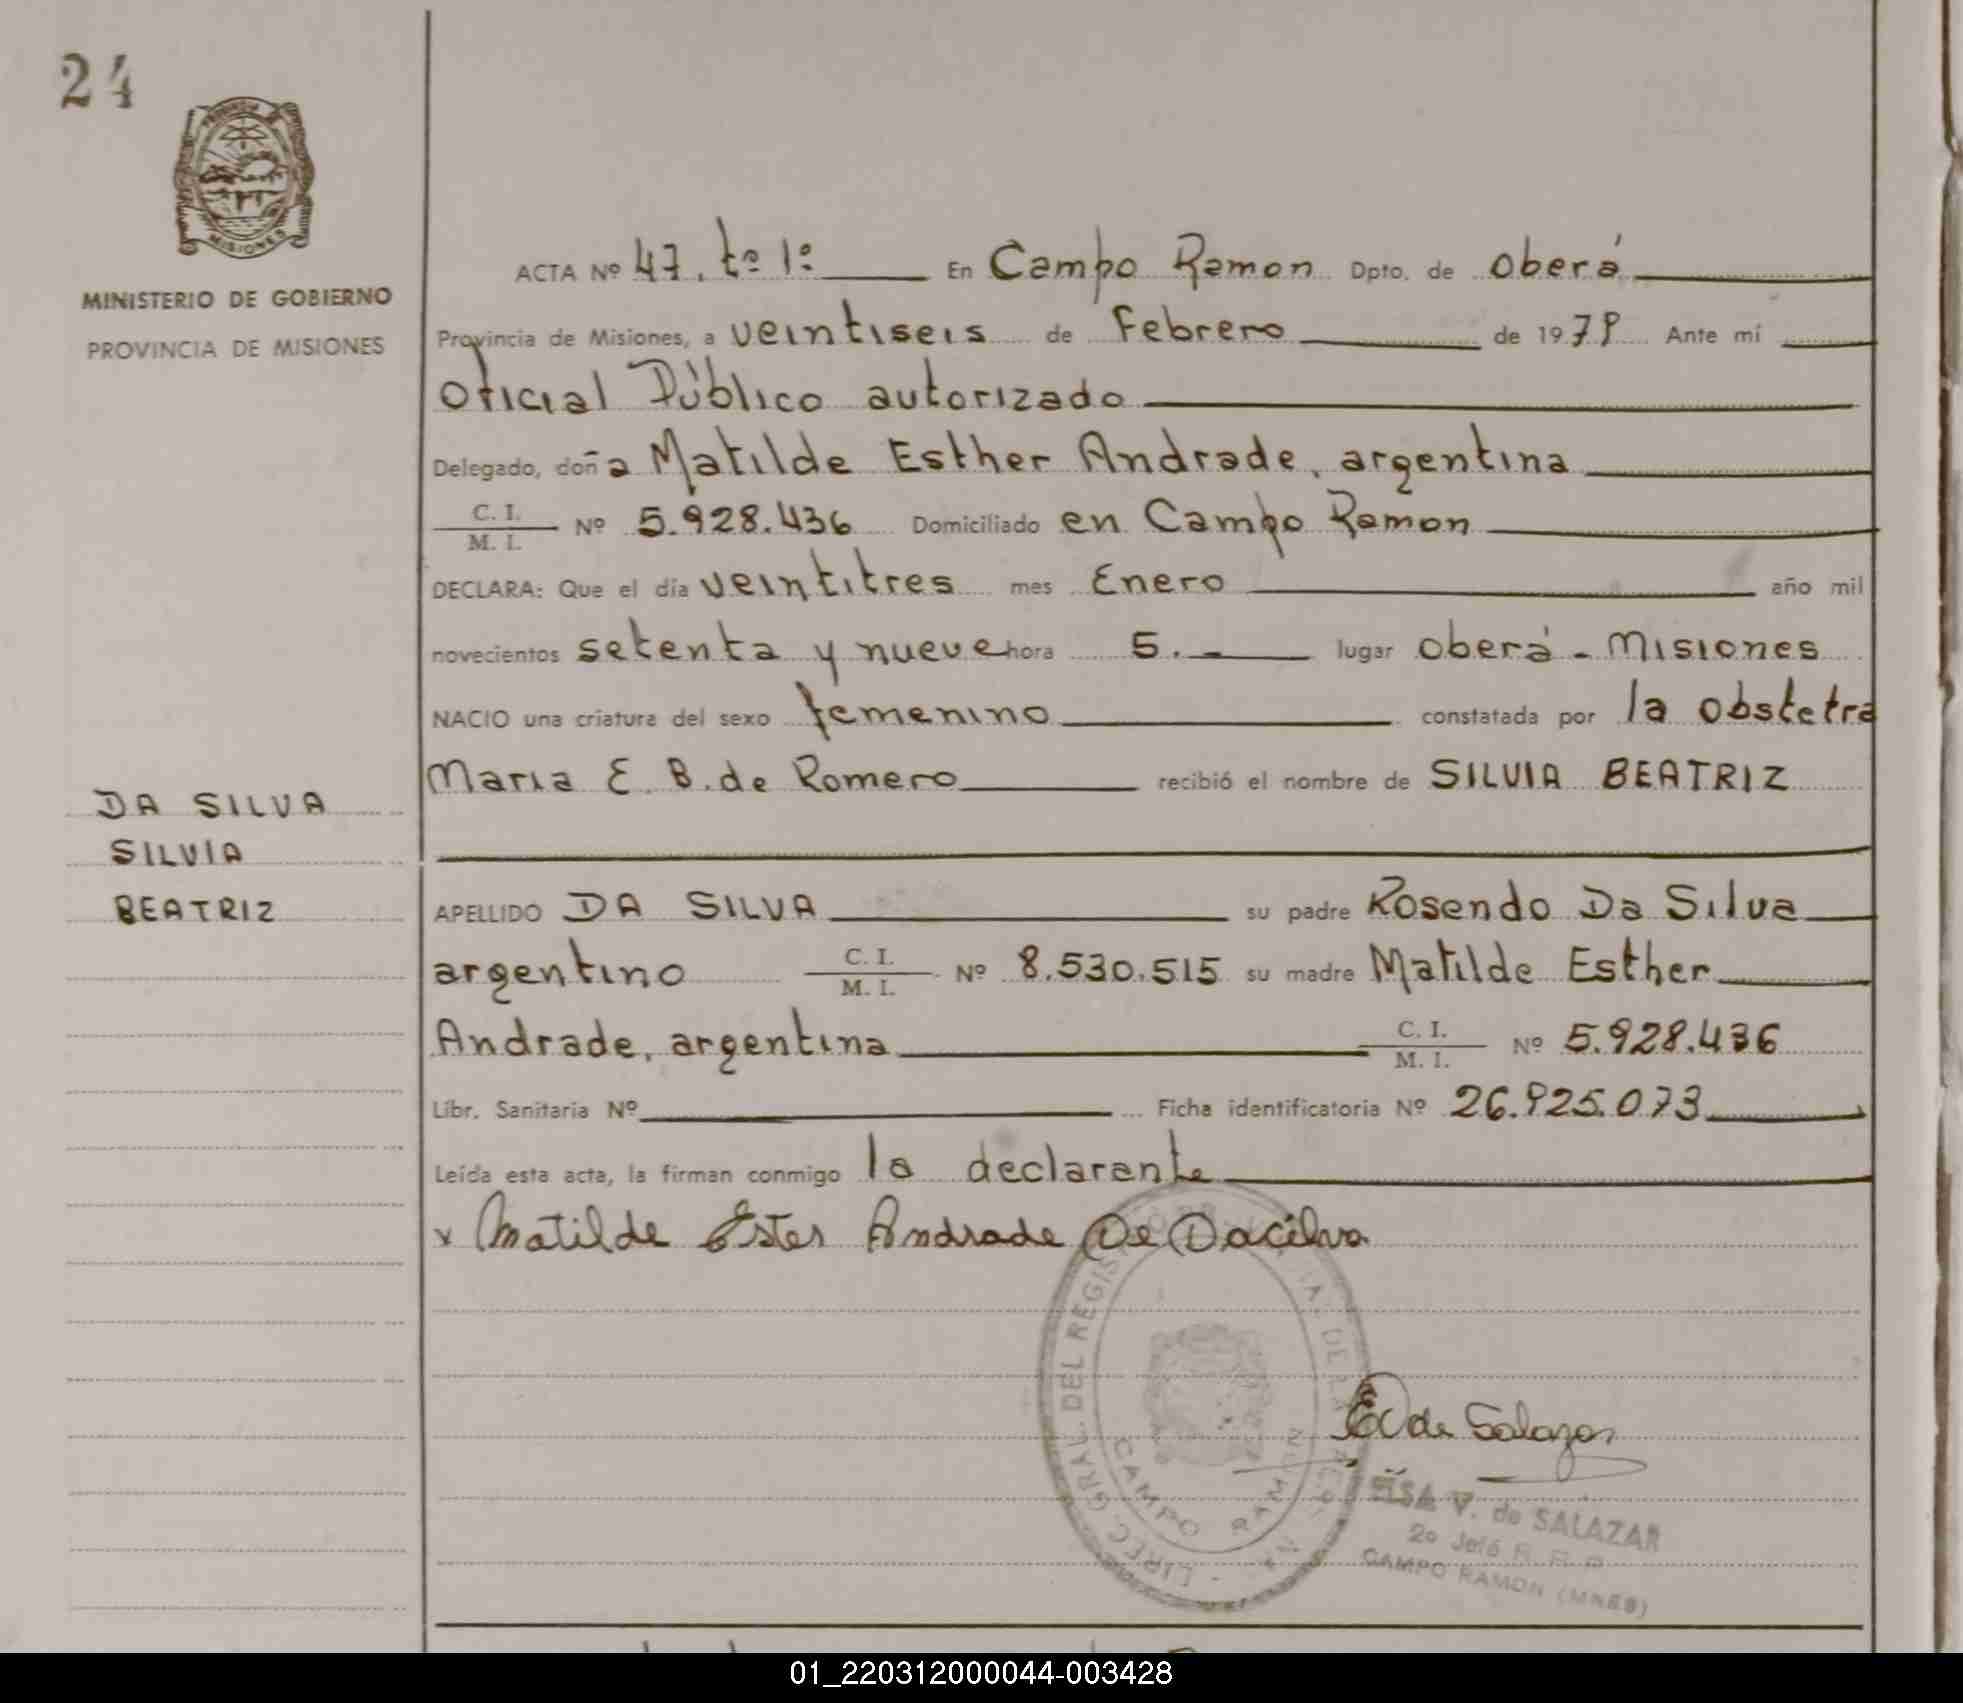 24
MINISTERIO DE GOBIERNO
PROVINCIA DE MISIONES
ACTA Nº 47. tº 1º En Campo Ramon Dpto. de Oberá
Provincia de Misiones, a veintiseis de Febrero de 1979 Ante mí
Oficial Público autorizado
Delegado, doña Matilde Esther Andrade, argentina
C. I.
M. I. Nº 5.928.436 Domiciliado en Campo Ramon
DECLARA: Que el día veintitres mes Enero año mil
novecientos setenta y nueve hora 5.- lugar Oberá - Misiones
NACIO una criatura del sexo femenino constatada por la obstetra
Maria E. B. de Romero recibió el nombre de SILVIA BEATRIZ
DA SILVA
SILVIA
BEATRIZ
APELLIDO DA SILVA su padre Rosendo Da Silva
argentino C. I.
M. I. Nº 8.530.515 su madre Matilde Esther
Andrade, argentina C. I.
M. I. Nº 5.928.436
Libr. Sanitaria Nº Ficha identificatoria Nº 26.925.073
Leída esta acta, la firman conmigo la declarante
x Matilde Ester Andrade De Dacilva
DIREC. GRAL. DEL REGIS
CAMPO RAMON
E V de Salazar
ELSA V. de SALAZAR
2º Jefe R. P.
CAMPO RAMON (MNES)
01_220312000044-003428